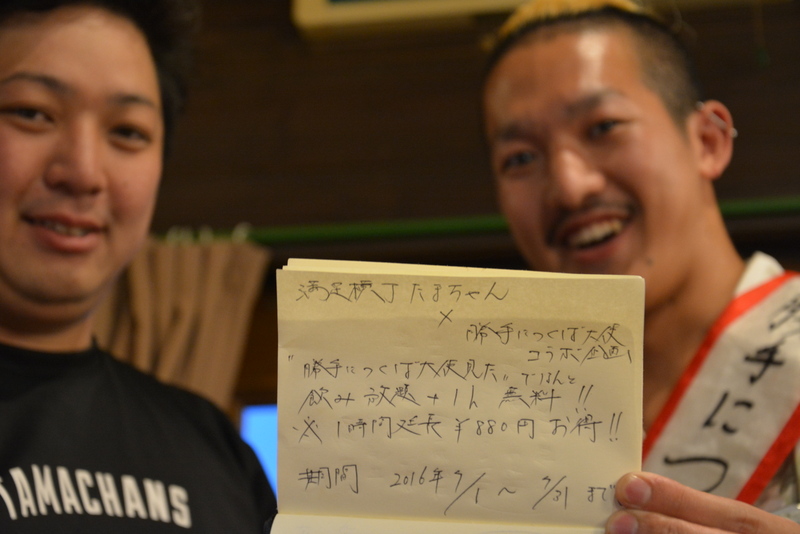 満足横丁たまちゃん
×
勝手につくば大使
コラボ企画!
"勝手につくば大使見た"でなんと
飲み放題+1h 無料!!
※1時間延長¥880円お得!!
期間 2016年9/1~9/31まで
AMACHANS
勝手につ